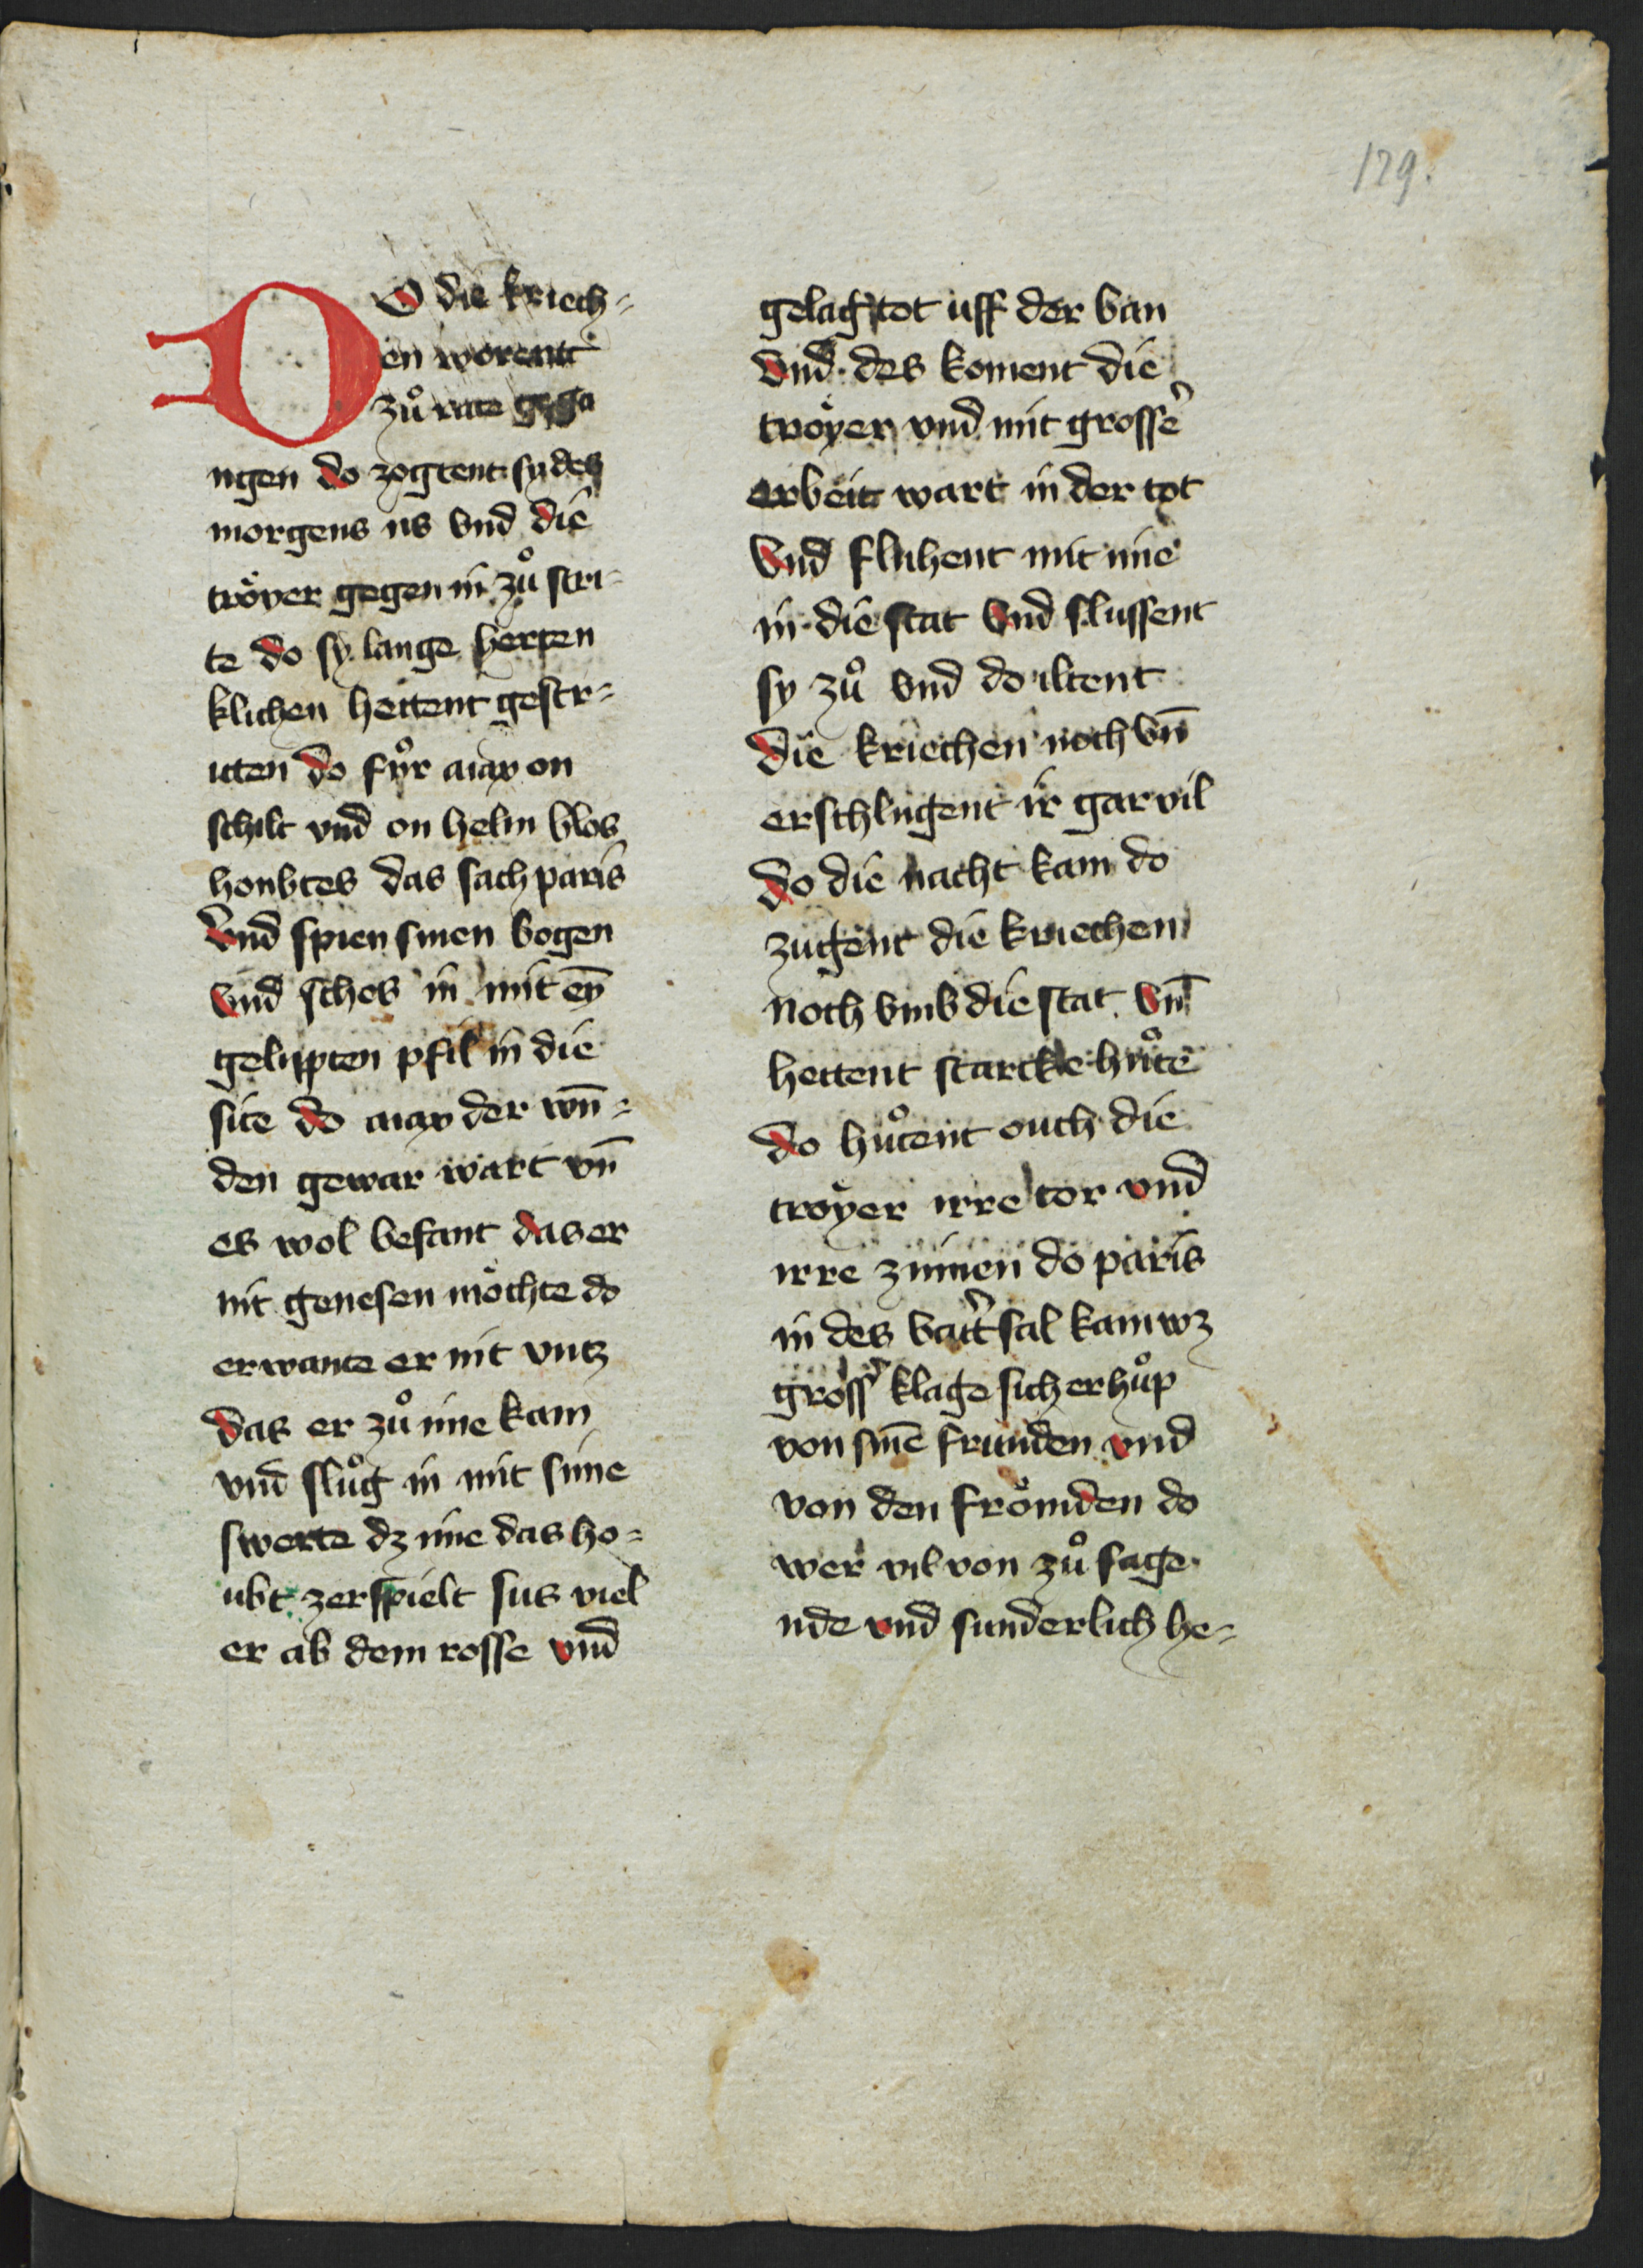 129.
DO die kriech-
en worentt
zuͦ rate gega
ngen do zogtent sy des
morgens us vnd die
tröyer gegen in zuͦ stri-
te do sy lange herten
klichen hettent gestr-
itten do fuͦr aiax on
schilt vnd on helm blos
houbtes das sach paris
vnd spien sinen bogen
vnd schos in mit eȳ
gelupten pfil in die
site do aiax der wn̄-
den gewar wart vn̄
es wol befant das er
nit genesen möchte do
erwante er nit vntz
das er zuͦ ime kam
vnd sluͦg in mit sime
swerte dz ime das ho-
ubt zerspielt sus viel
er ab dem rosse vnd
gelag tot uff der ban
vnd des koment die
tröyer vnd mit grosser
erbeitt wart in der tot
vnd fluhent mit ime
in die stat vnd slussent
sy zuͦ vnd do iltent
die kriechen noch vn̄
erschlugent ir gar vil
do die nacht kam do
zugent die kriechen
noch vmb die stat vn̄
hettent starcke huͦte
do huͦtent ouch die
tröyer irre tor vnd
irre zinnen do paris
in des vatt'sal kam wz
gross' klage sich erhuͦp
von sinē frunden vnd
von den frömden do
wer vil von zuͦ sage
nde vnd sunderlich he-